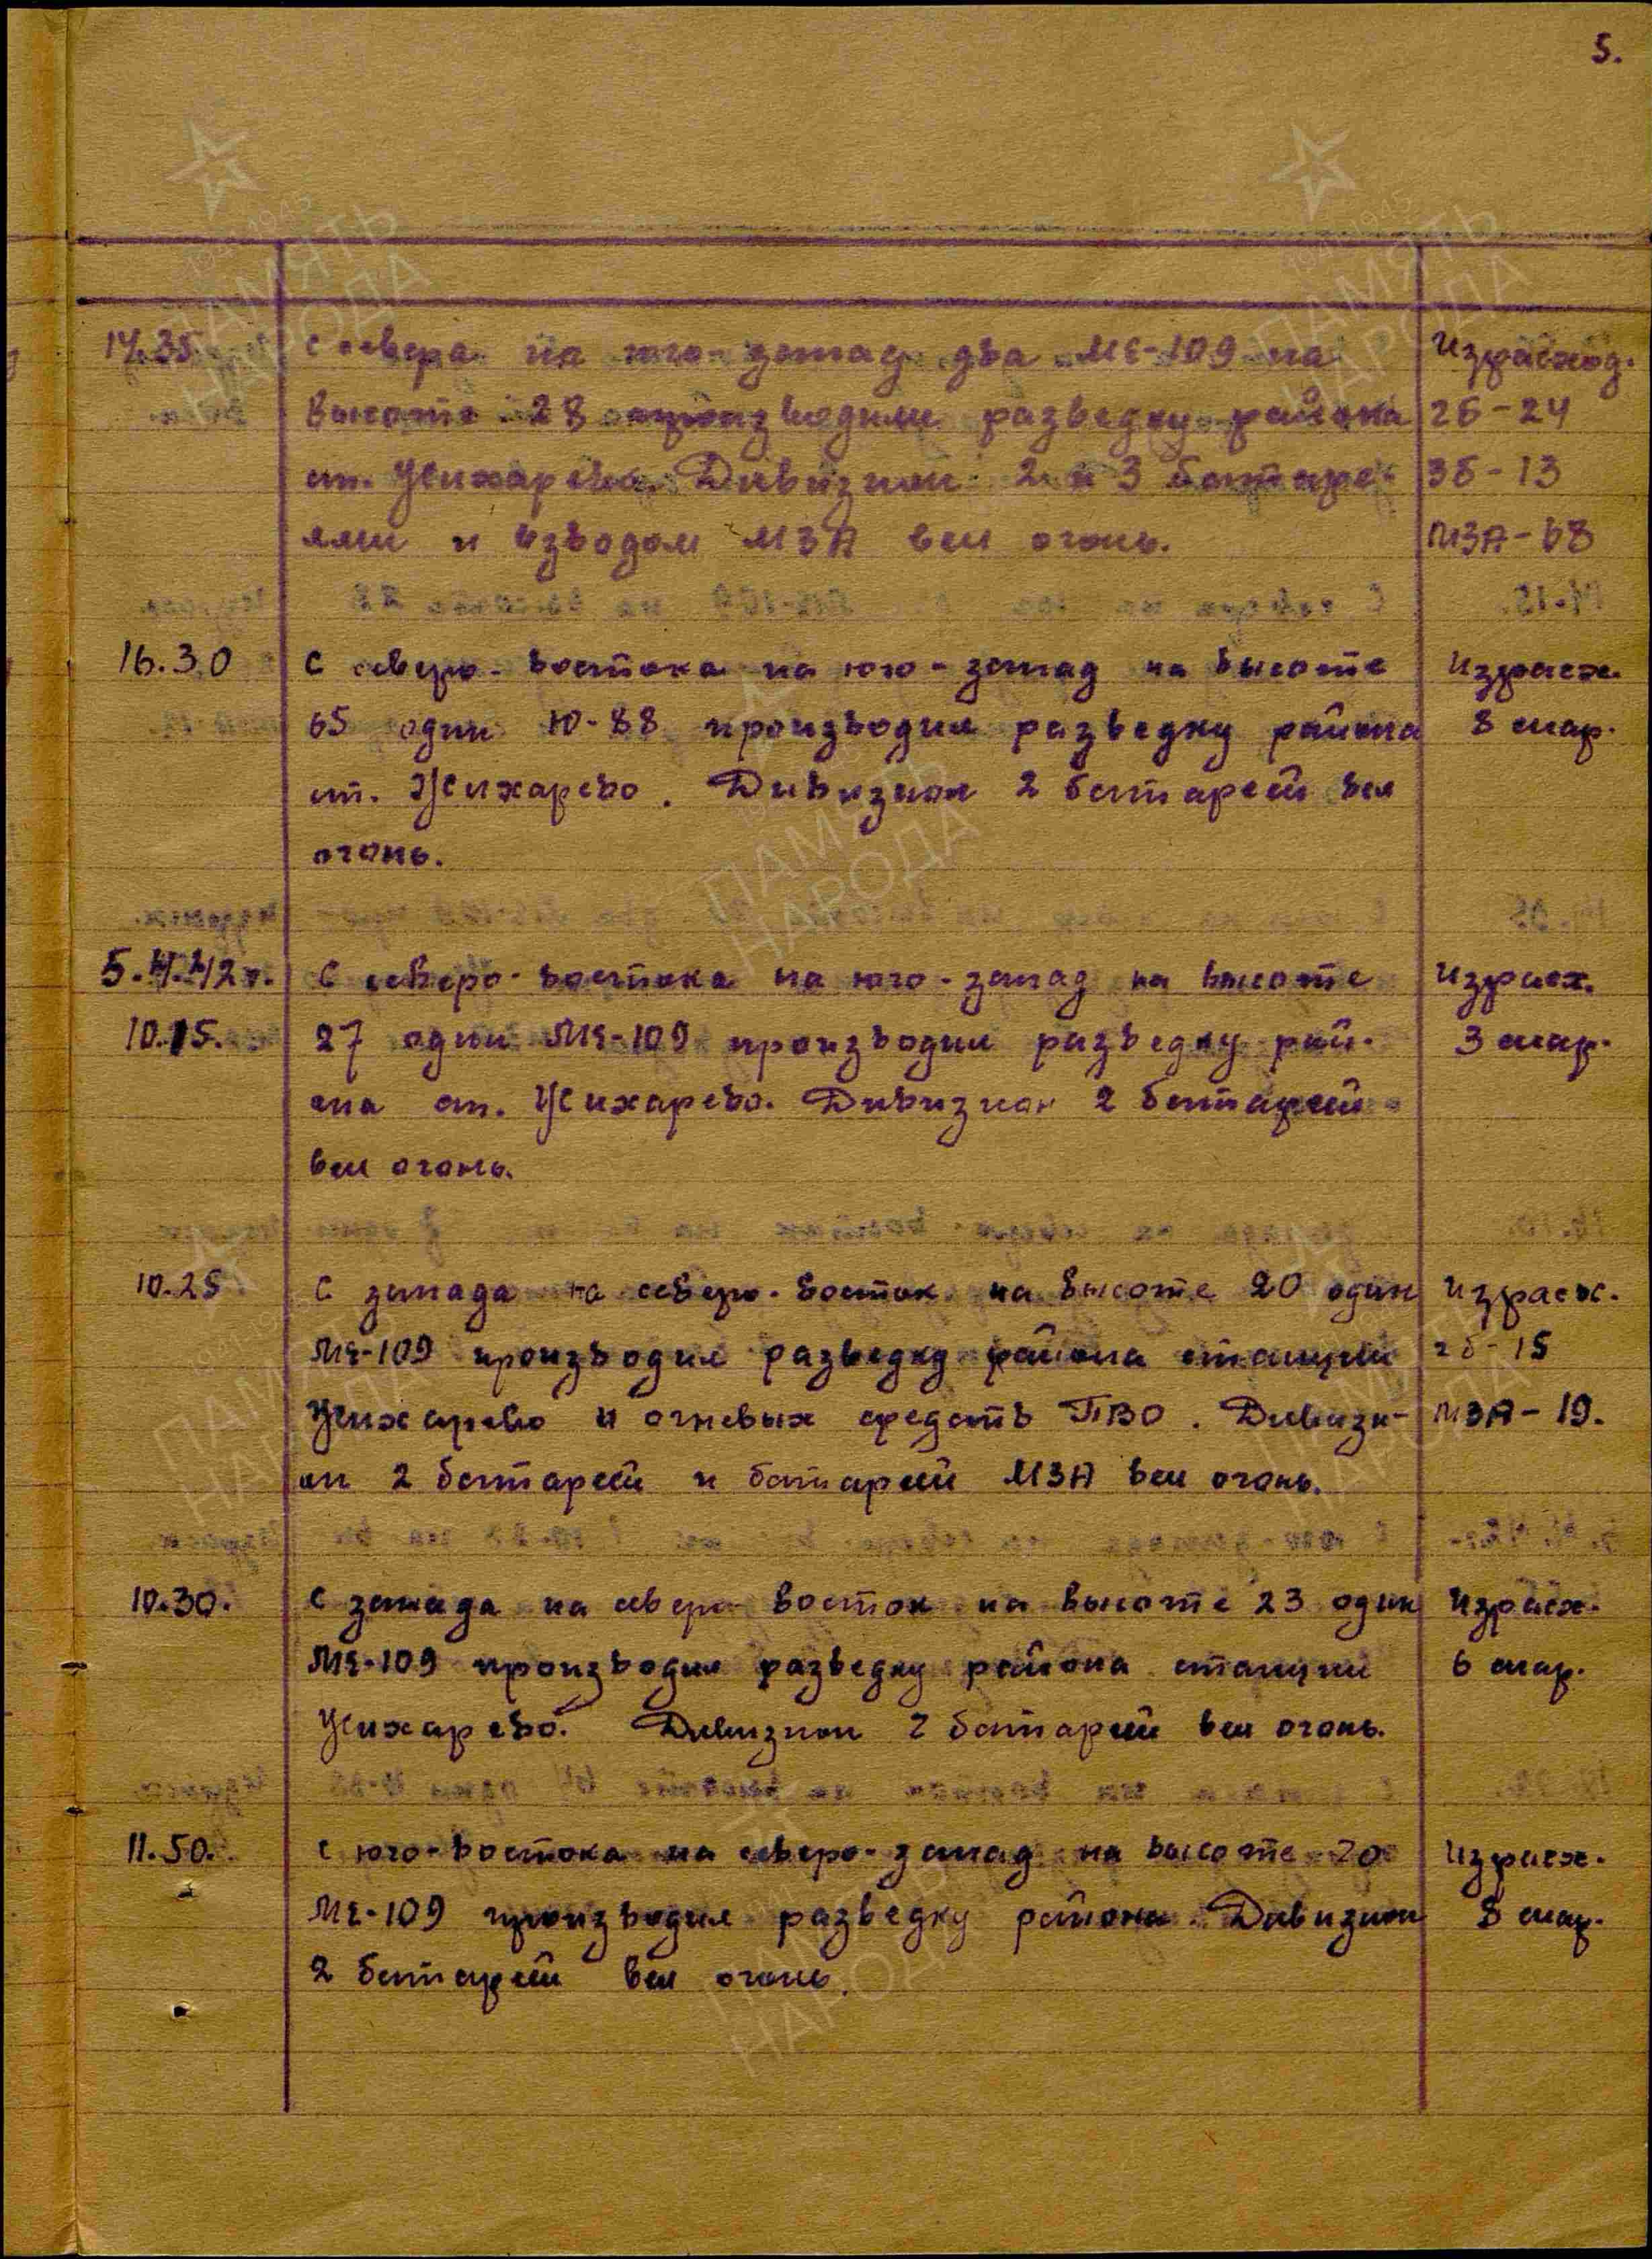 5.
14.35 с севера на юго-запад два МЕ-109 на Израсход.
высоте 28 производили разведку района 2б-24
ст. Жихарево. Дивизион 2 и 3 батаре- 3б-13
ями и взводом МЗА вел огонь. МЗА-68
16.30 с северо-востока на юго-запад на высоте Израсх.
65 один Ю-88 производил разведку района 8 снар.
ст. Жихарево. Дивизион 2 батареей вел
огонь.
5.4.42г. С северо-востока на юго-запад на высоте Израсх.
10.15. 27 один МЕ-109 производил разведку рай- 3 снар.
она ст. Жихарево. Дивизион 2 батареей
вел огонь.
10.25 С запада на северо-восток на высоте 20 один Израсх.
МЕ-109 производил разведку района станции 2б-15
Жихарево и огневых средств ПВО. Дивизи- МЗА-19.
он 2 батареей и батареей МЗА вел огонь.
10.30. с запада на северо-восток на высоте 23 один Израсх.
МЕ-109 производил разведку района станции 6 снар.
Жихарево. Дивизион 2 батареей вел огонь.
11.50. с юго-востока на северо-запад на высоте 20 Израсх.
МЕ-109 производил разведку района Дивизион 8 снар.
2 батареей вел огонь.
ПАМЯТЬ
НАРОДА